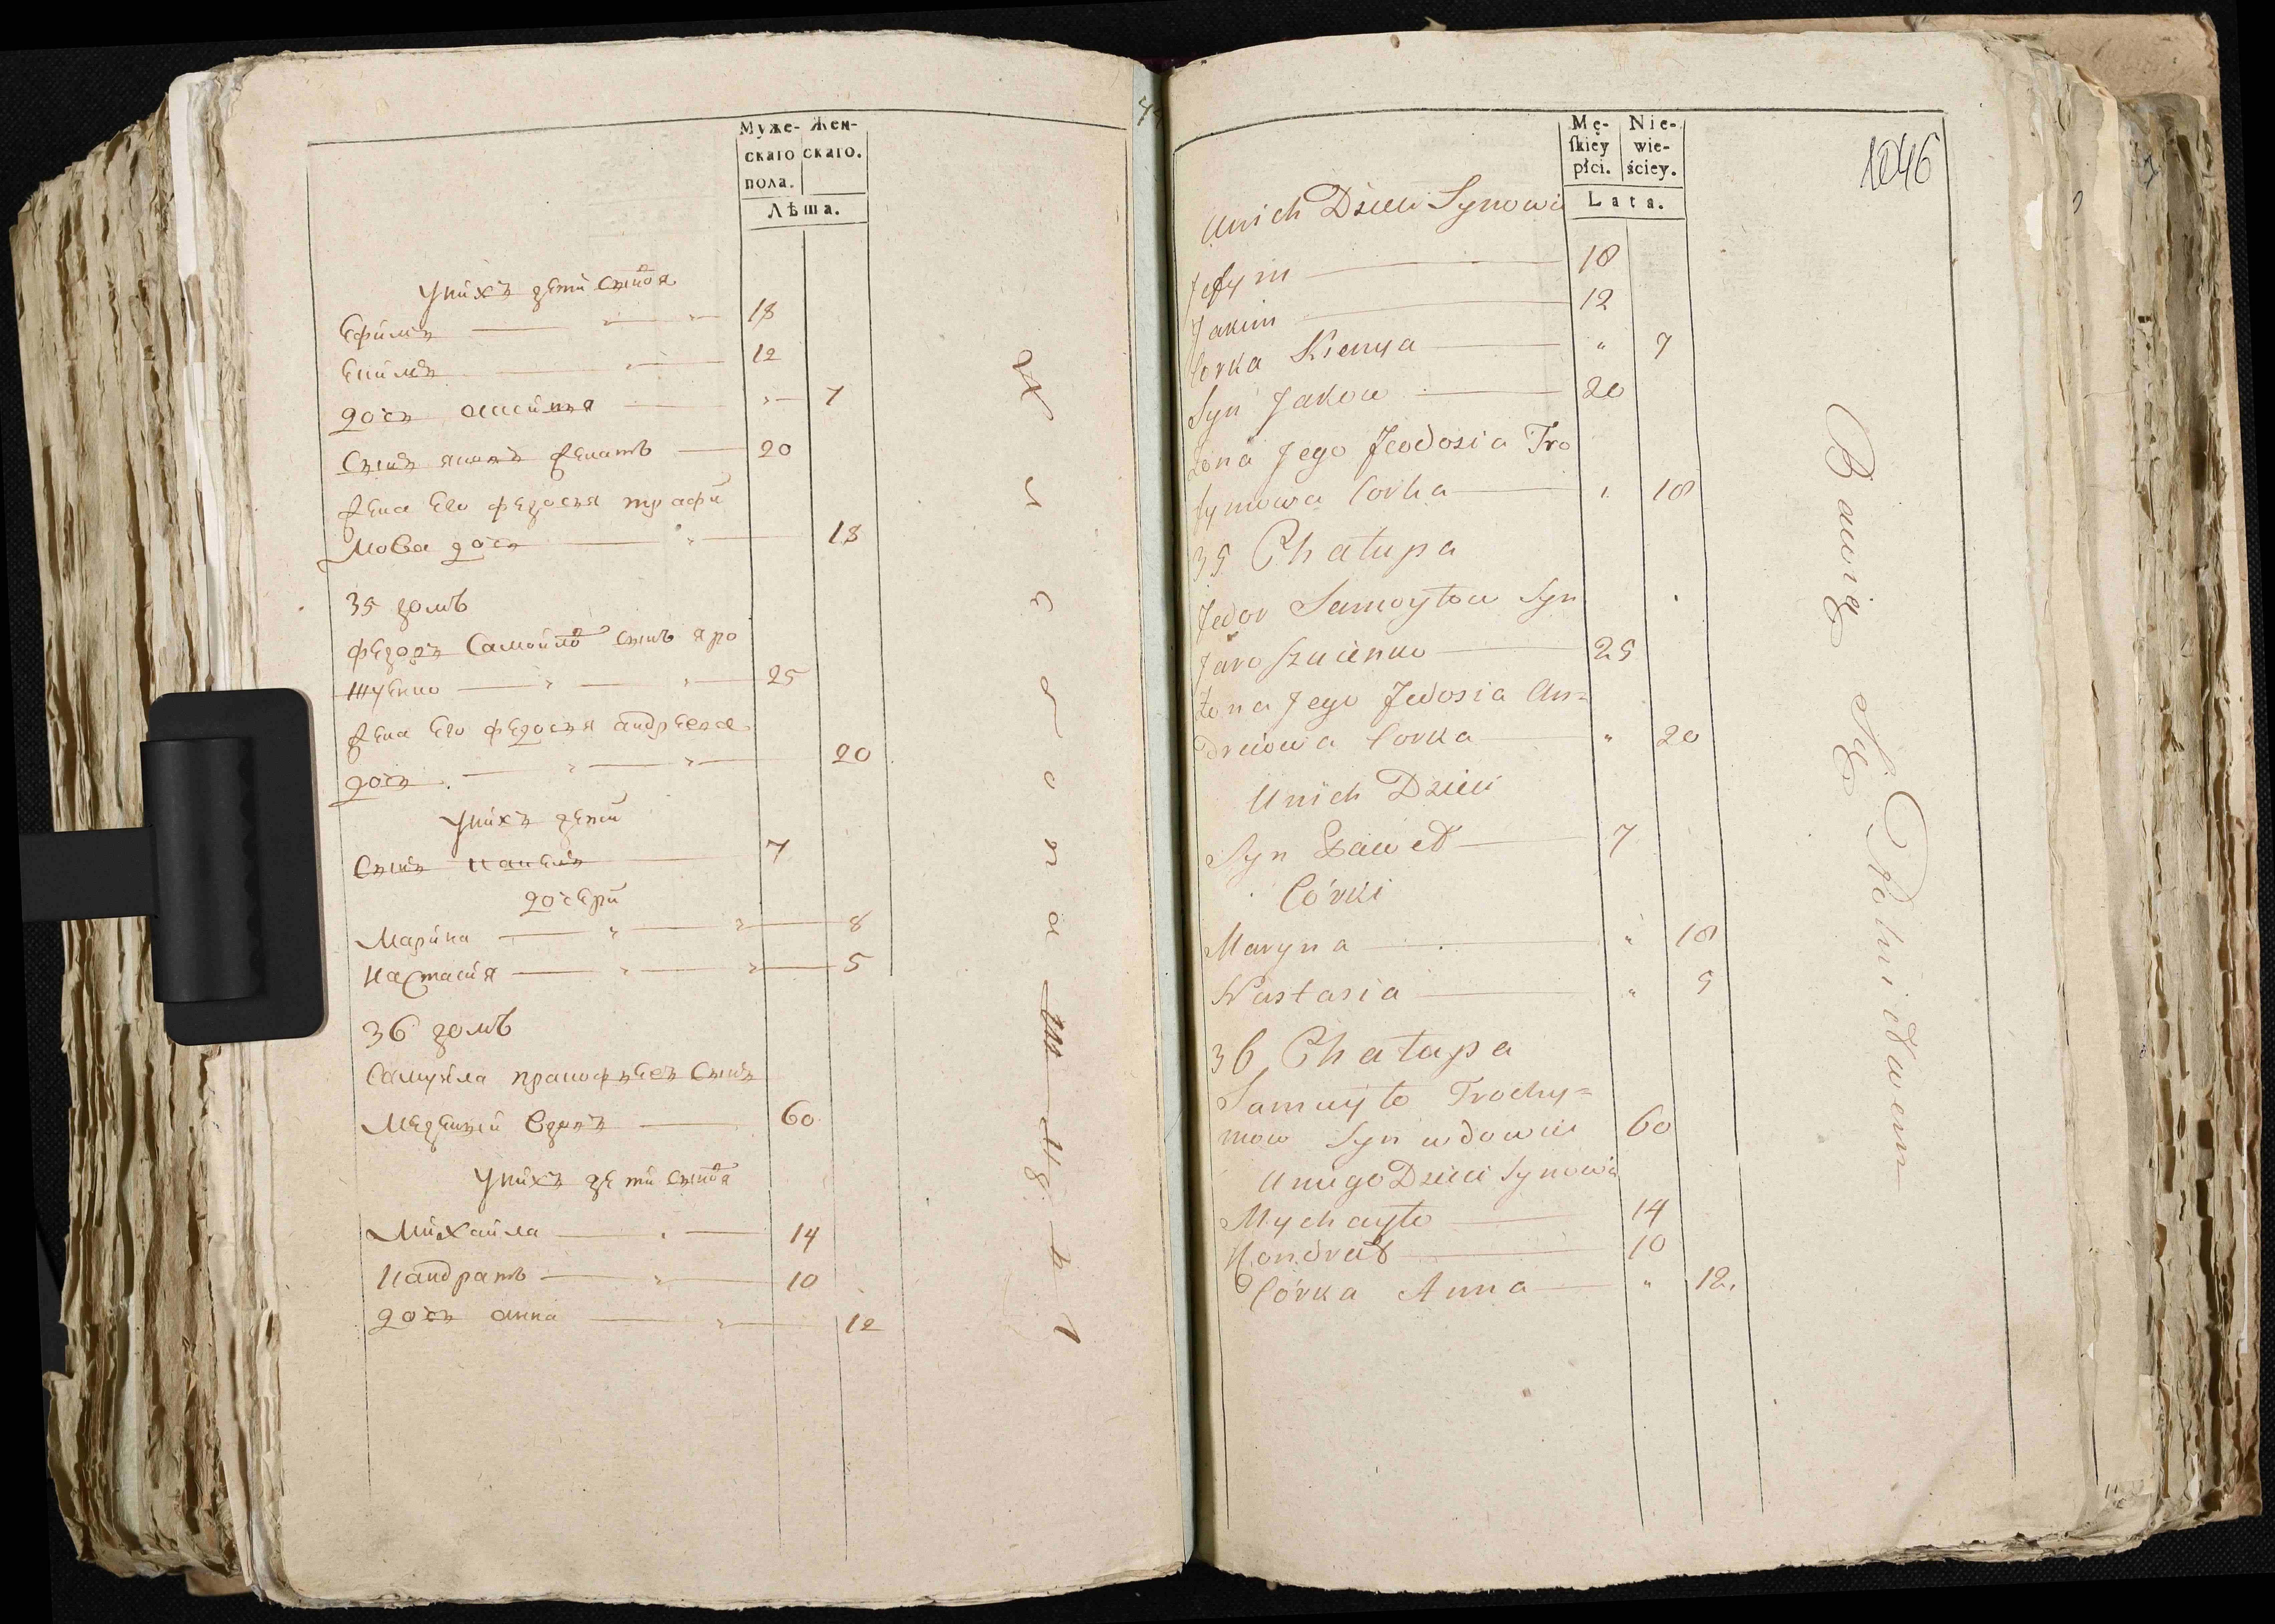 Муже- Жен-
скаго скаго.
пола.
Лѣта.
У нихъ дети сынов̾я
Ефимъ 18
Екимъ 12
дочь 7
Сынъ яковъ женатъ 20
жена Его федосья трафи
мова дочь 18
35 домъ
федоръ Самойлов сынъ яро
шуенко 25
жена Его федосья андреева
дочь 20
У нихъ дети
Сынъ павелъ 7
дочери
Марина 8
настасия 5
36 домъ
Самуйла сынъ
вдовъ 60
У нихъ дети сыновя
Михайла 14
кандратъ 10
дочь анна 12
Mę- Nie-
skiey wie-
płci. ściey.
Lata.
1046
Unich Dzieci Synowie
Jefym 18
Jakim 12
Corka Kienya " 7
Syn Jakow 20
Zona Jego Feodosia Tro
fymowa Corka " 18
35 Chałupa
Fedor Samoyłow Syn
Jaroszuienko 25
Zona Jego Fedosia An=
dreiowa Corka " 20
Unich Dzieci
Syn Paweł 7
Córki
Maryna " 18
Nastasia " 5
36 Chałupa
Samuyło Trochy=
mow Syn wdowiec 60
Uniego Dzieci Synowie
Mychayło 14
Kondrat 10
Córka Anna " 12.
Bawią Się Rolnictwem